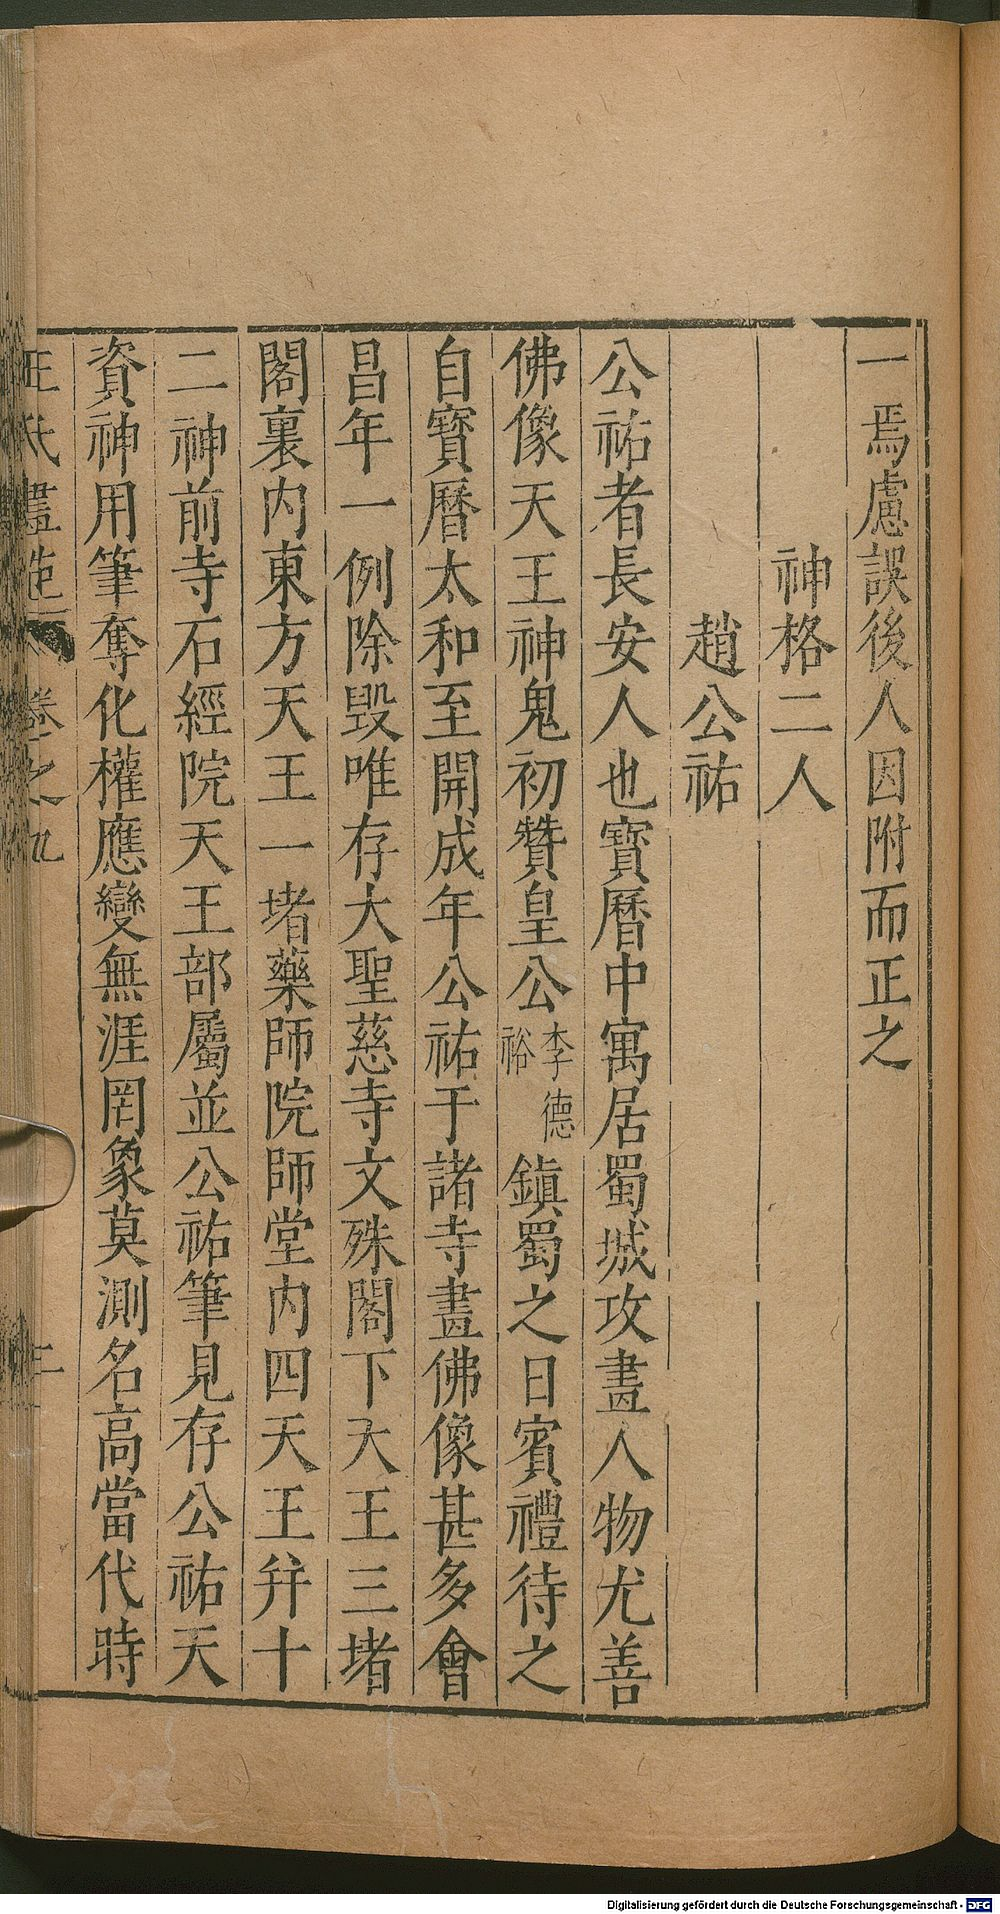 一焉慮誤後人因附而正之
神格二人
趙公祐
公祐者長安人也寳曆中寓居蜀城攻畫人物尤善
佛像天王神鬼初贊皇公李德裕鎮蜀之日賓禮待之
自寳曆太和至開成年公祐于諸寺畫佛像甚多會
昌年一例除毀唯存大聖慈寺文殊閣下天王三堵
閣裏内東方天王一堵藥師院師堂内四天王并十
二神前寺石經院天王部屬並公祐筆見存公祐天
資神用筆奪化權應變無涯罔象莫測名高當代時
王氏畫苑 卷之九 二
Digitalisierung gefördert durch die Deutsche Forschungsgemeinschaft - DFG